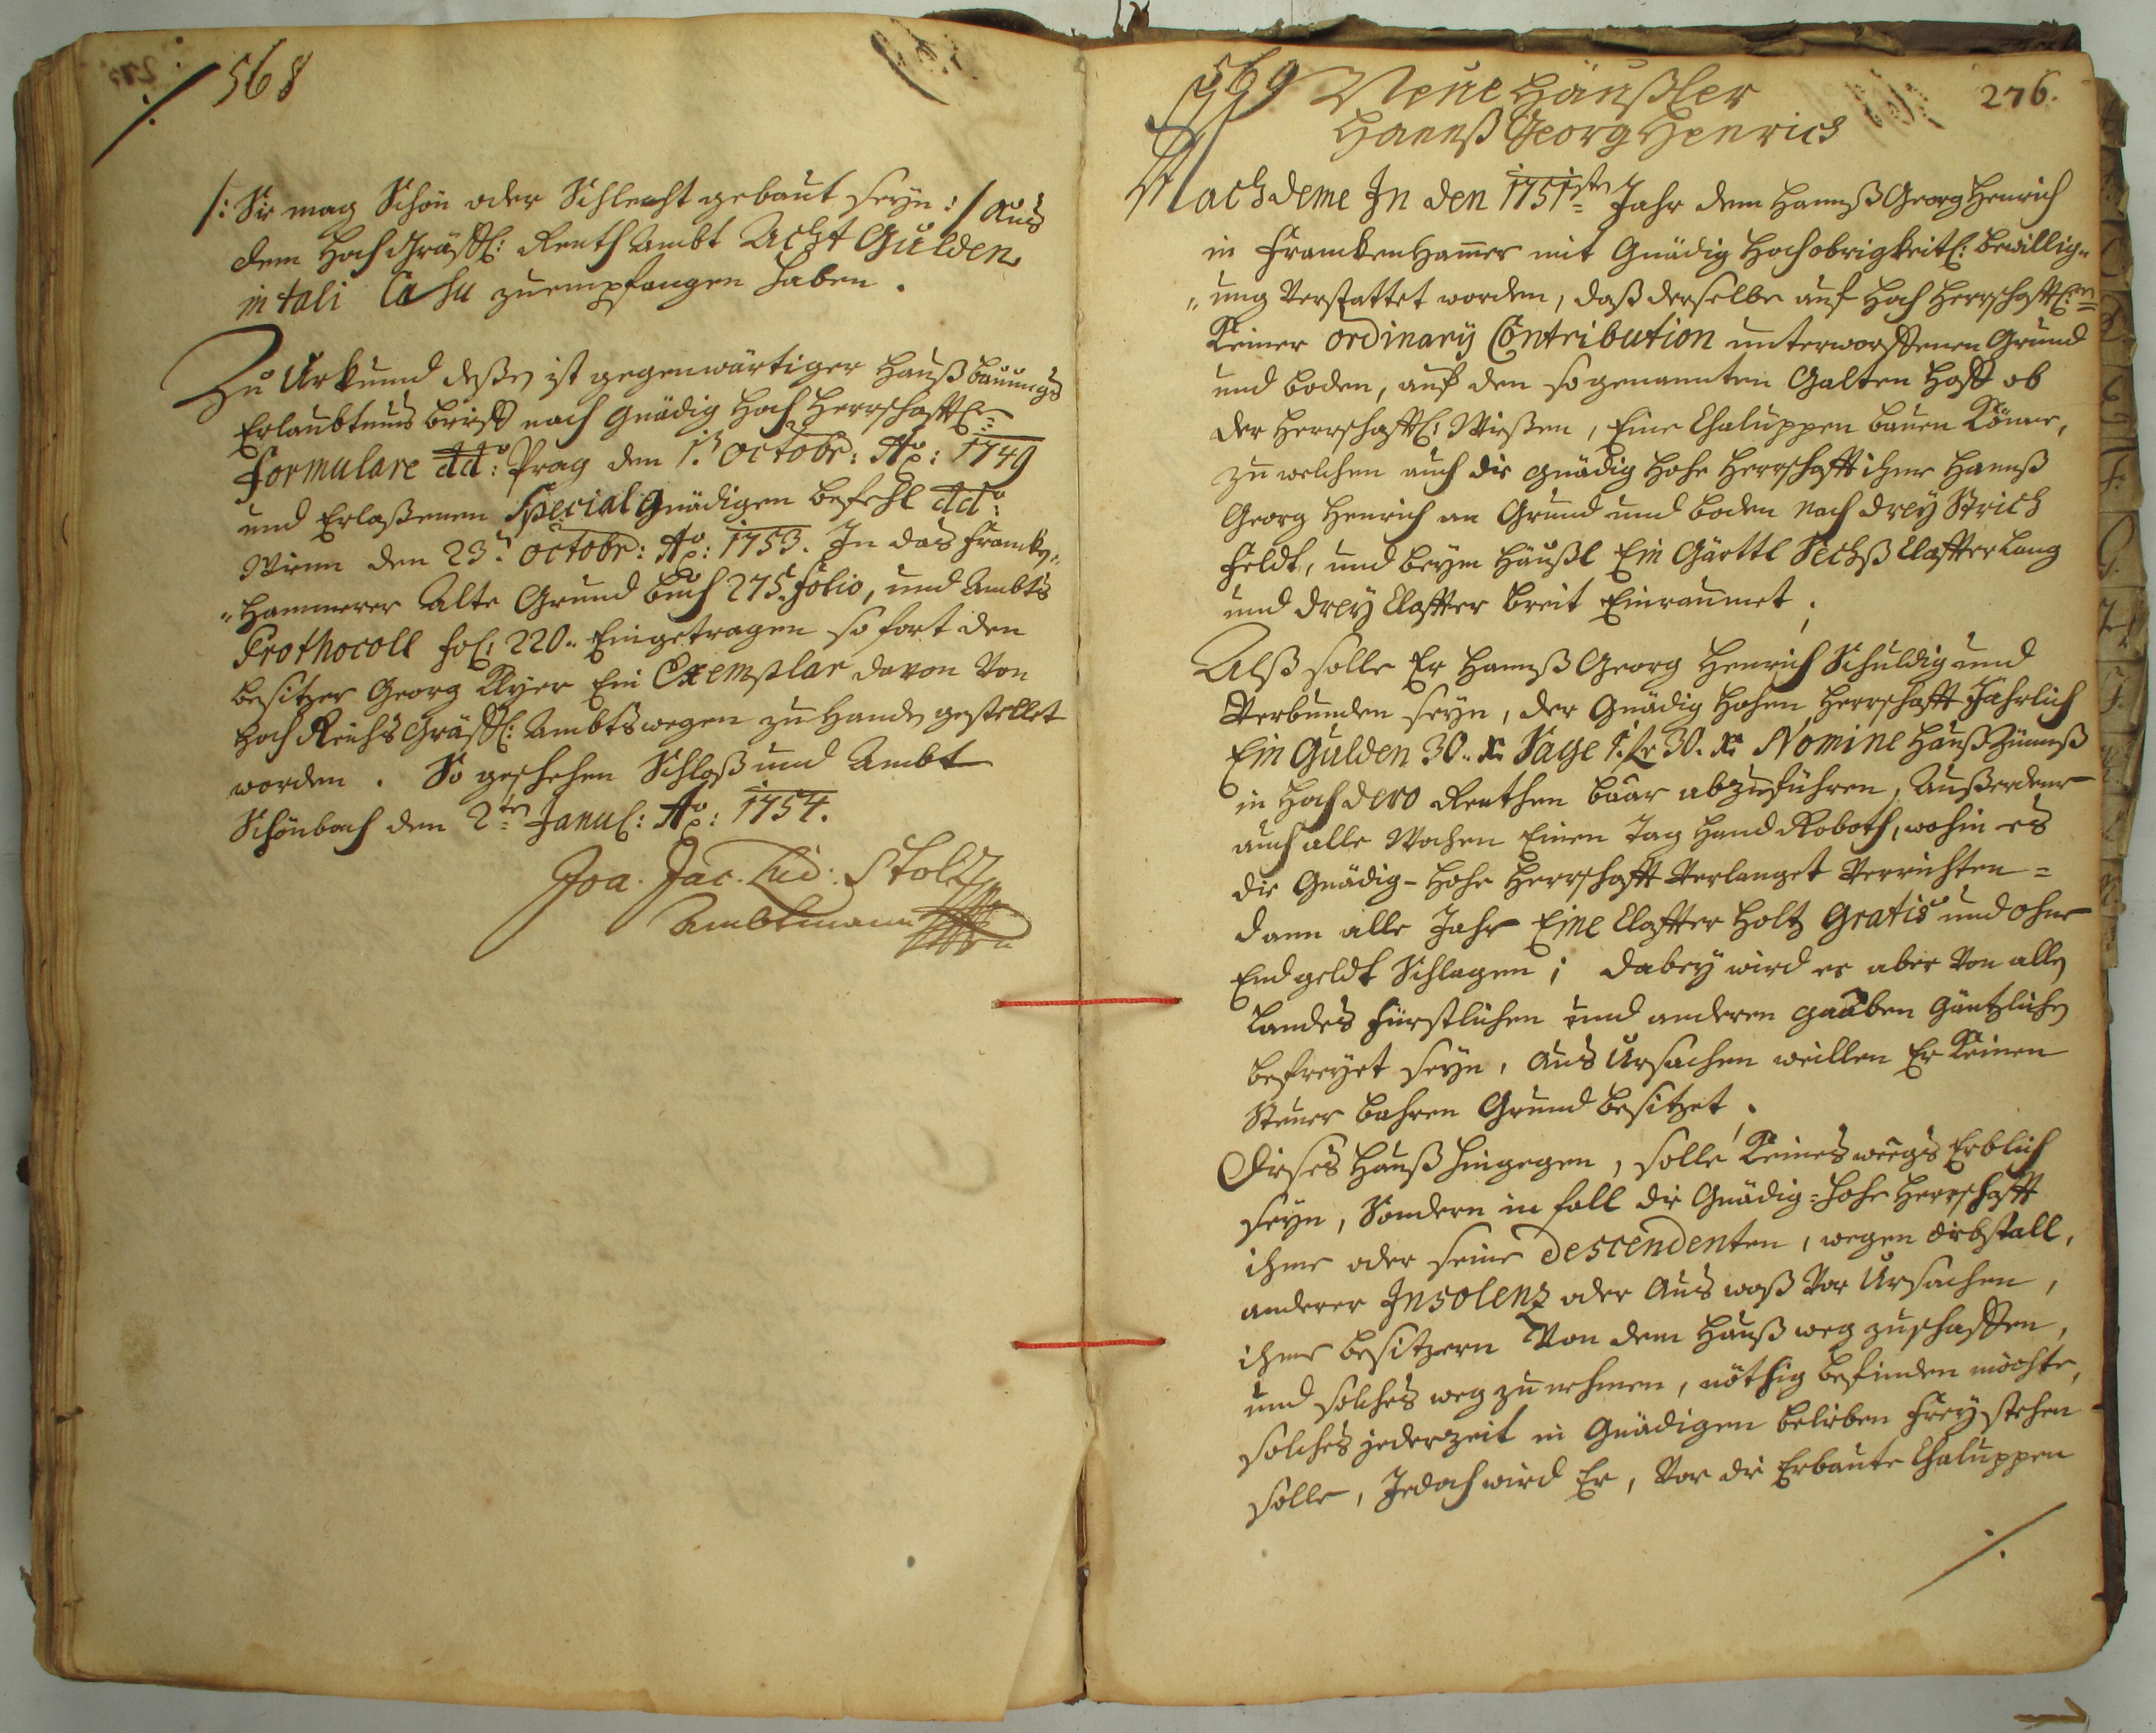 568
/: Sie mag Schön oder Schlecht gebaut seyn :/ Aus
dem Hochgräffl: Renth Ambt Acht Gulden
in tali Casu zuempfangen haben.
Zu Urkund deßen ist gegenwärtiger Haußbauungs
Erlaubtnus brieff nach Gnädig Hoch Herrschafftl:
Formulare dd: Prag den 1. Octobr: Ao: 1749
und Erlaßenen Special Gnädigen befehl dd:
Wienn den 23. Octobr: Ao: 1753. In das Franken"
"Hammerer Alte Grund buch 275. Folio, und Ambts
Prothocoll fol: 220. Eingetragen so fort den
besitzer Georg Ein Exemplar davon Von
Hoch Reichs Gräffl: Ambtswegen zu Handen gestellet
worden. So geschehen Schloß und Ambt
Schönbach den 2ten Janu: Ao: 1754.
Joa. Jac. Stolz
Ambtmann
569 Neue Häußler 276.
Hannß Georg Henrich
Nachdeme In den 1751sten Jahr dem Hannß Georg Henrich
in Franckenhamer mit Gnädig Hochobrigkeitl: bewillig"
"ung Verstattet worden, daß derselbe auf Hoch Herrschafftl:en
Keiner ordinary Contribution unterworffenen Grund
und boden, auf den sogenannten Galten Hoff ob
der Herrschafftl: Wießen, Eine Chaluppen bauen Könne,
zu welchen auch die gnädig Hohe Herrschafft ihme Hannß
Georg Henrich an Grund und boden noch drey Strich
Feldt, und beym Häußl Ein Gärttl Sechß Claffter lang
und drey Claffter breit Einraumet;
Alß solle Er Hannß Georg Henrich Schuldig und
Verbunden seyn, der Gnädig Hohen Herrschafft Jährlich
Ein Gulden 30. xr Sage 1. fl 30. xr Nomine Hauß Zinnß
in Hoch dero Renthen baar abzuführen, Außerdeme
auch alle Wochen Einen Tag Hand Roboth, wohin es
die Gnädig-Hohe Herrschafft Verlanget Verrichten =
dann alle Jahr Eine Claffter Holtz Gratis und ohne
Endgeldt Schlagen; dabey wird er aber Von allen
Landes Fürstlichen und anderen gaaben Gäntzlichen
befreyet seyn, Aus Ursachen weillen Er Keinen
Steuer bahren Grund besitzet.
Dieses Hauß hingegen, solle Keinesweegs Erblich
seyn, Sondern in fall die Gnädig-Hohe Herrschafft
ihme oder seine Descendenten, wegen diebstall,
anderer Insolenz oder Aus waß Vor Ursachen,
ihme besitzern Von dem Hauß weg zuschaffen,
und solches weg zu nehmen, nöthig befinden möchte,
solches jederzeit in Gnädigen belieben Freystehen
solle, Jedoch wird Er, Vor die Erbaute Chaluppen